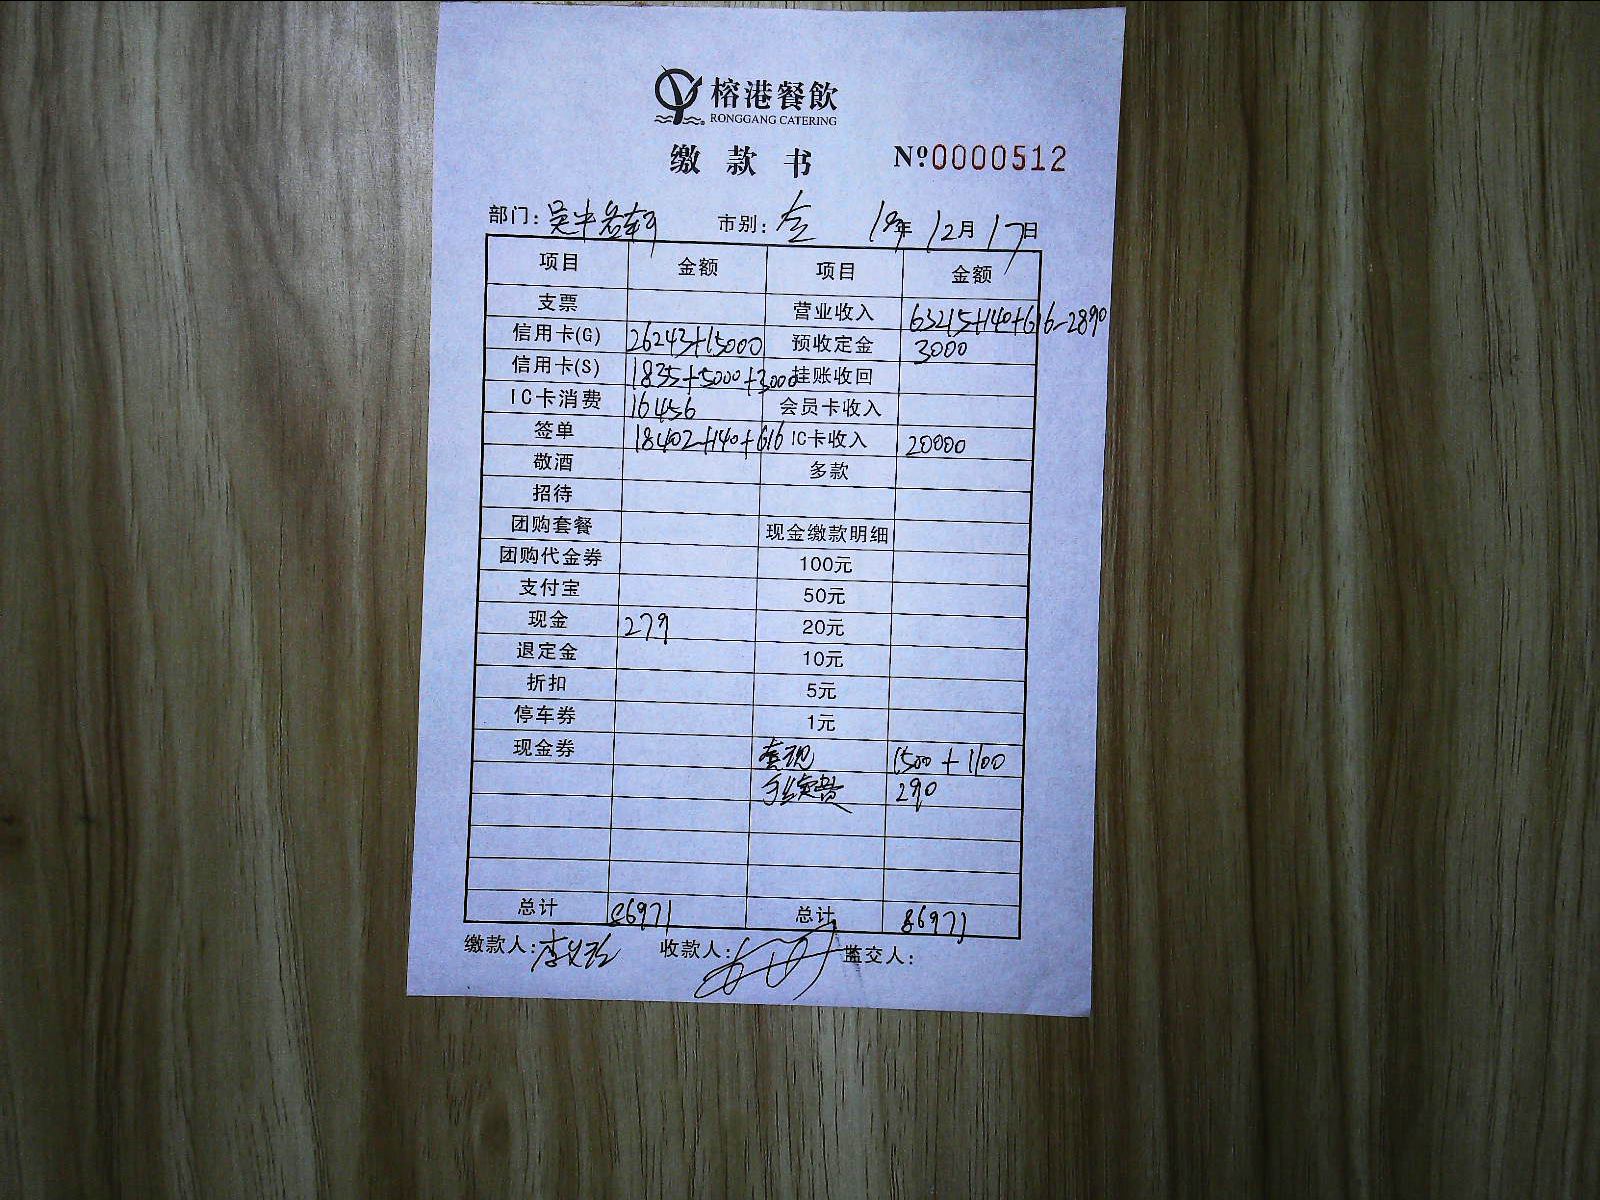 榕港餐飲
RONGGANG CATERING
缴款书 Nº0000512
部门: 吴中 市别: 全 19年 12月 17日
项目 金额 项目 金额
支票 营业收入 63215+140+616-2890
信用卡(G) 26243+15000 预收定金 3000
信用卡(S) 1835+5000+3000 挂账收回
IC卡消费 16456 会员卡收入
签单 18402+140+616 IC卡收入 20000
敬酒 多款
招待
团购套餐 现金缴款明细
团购代金券 100元
支付宝 50元
现金 279 20元
退定金 10元
折扣 5元
停车券 1元
现金券 套现 1500+1100
手续费 290
总计 86971 总计 86971
缴款人: 李 收款人: 监交人: